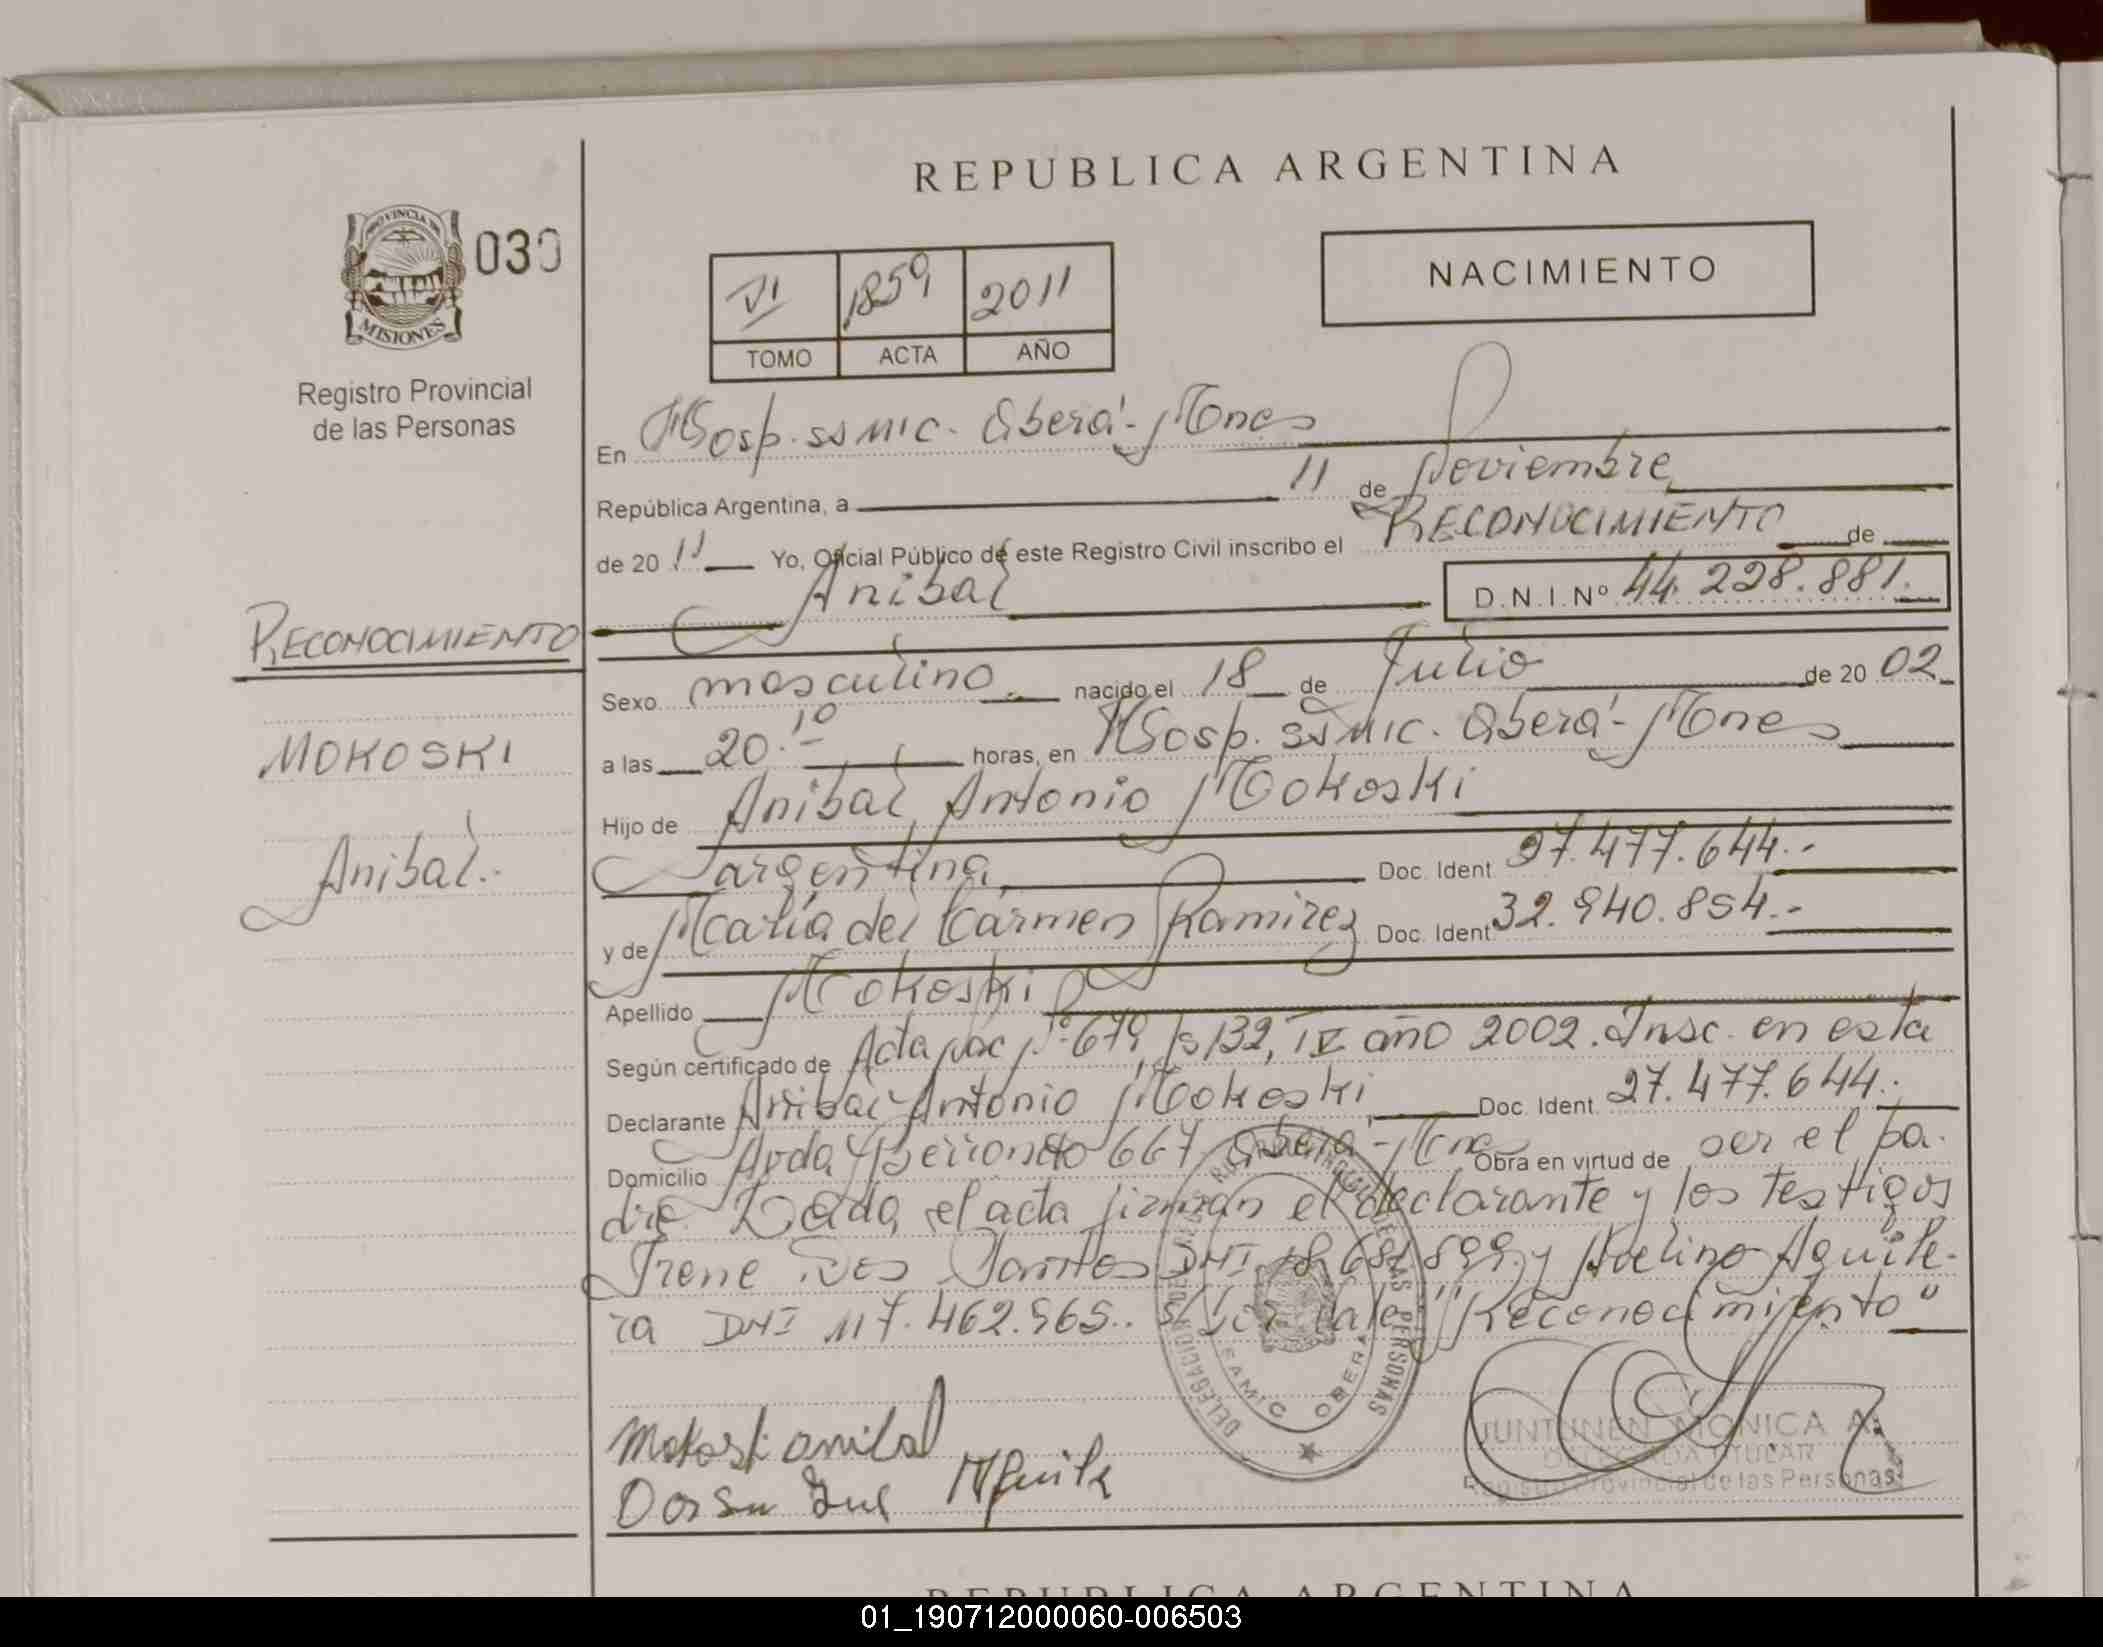 REPUBLICA ARGENTINA
PROVINCIA DE
MISIONES
030
Registro Provincial
de las Personas
VI 1859 2011
TOMO ACTA AÑO
NACIMIENTO
En Hosp. SSMIC. Oberá - Mnes
República Argentina, a 11 de Noviembre
de 20 11 Yo, Oficial Público de este Registro Civil inscribo el RECONOCIMIENTO de
Anibal D.N.I.Nº 44.228.881.
RECONOCIMIENTO
MOKOSKI
Anibal.-
Sexo masculino nacido el 18 de Julio de 20 02
a las 20.10 horas, en Hosp. SSMIC. Oberá - Mnes
Hijo de Anibal Antonio Mokoski
argentina Doc. Ident 27.477.644.-
y de María del Carmen Ramirez Doc. Ident 32.940.854.-
Apellido Mokoski
Según certificado de Acta Nac Nº 679, fs 132, IV año 2002. Insc. en esta
Declarante Anibal Antonio Mokoski Doc. Ident. 27.477.644.-
Domicilio Avda 667 Oberá - Mnes Obra en virtud de ser el pa-
dre. Leida el acta firman el declarante y los testigos
Irene Dos Santos DNI 18. 899. y Avelino Aguile-
ra DNI 17.462.965.. S/ vale "Reconocimiento"
Mokoski anibal
Aguile
DELEGACION DE LAS PERSONAS
SAMIC OBERA
JUNTUNEN MONICA A.
DELEGADA TITULAR
Registro Provincial de las Personas
REPUBLICA ARGENTINA
01_190712000060-006503